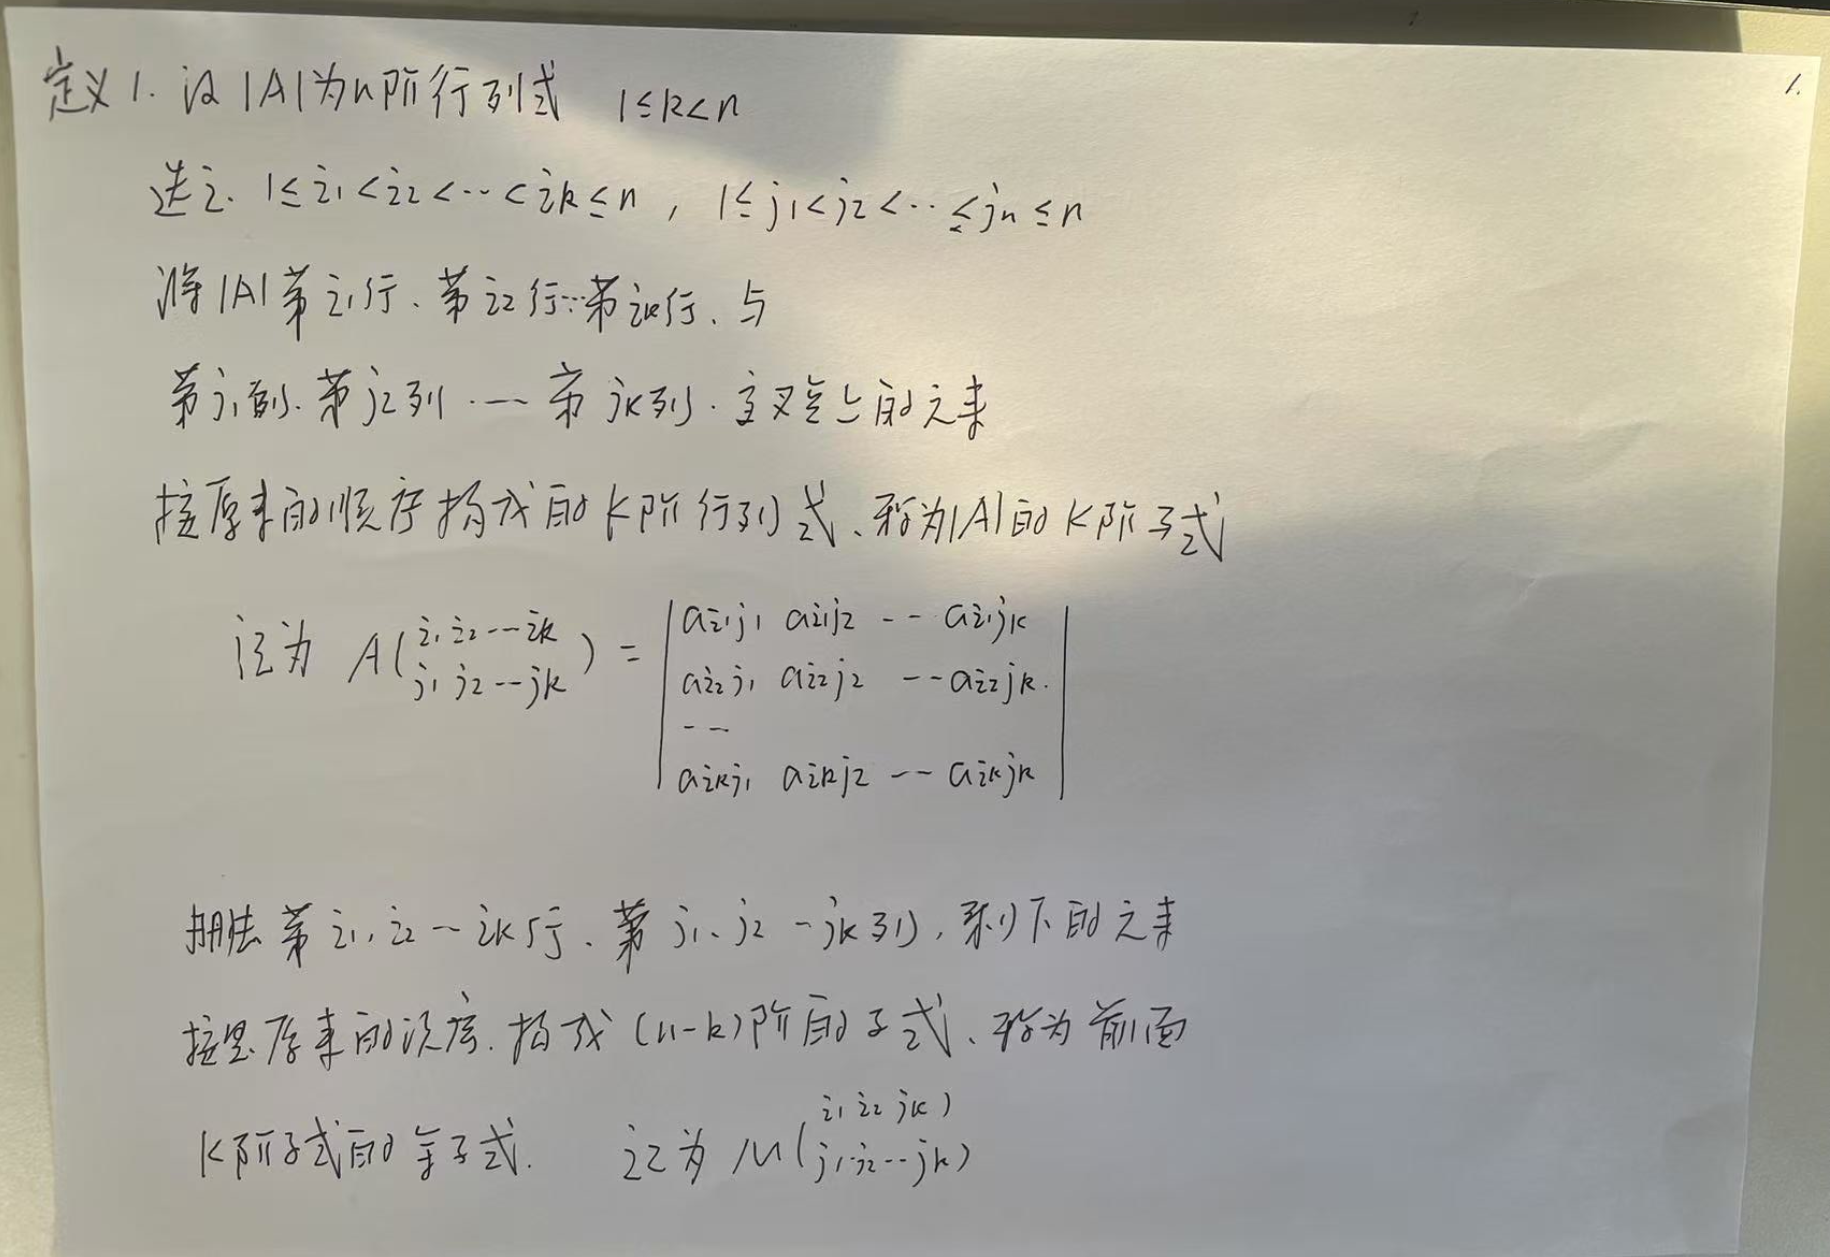 定义1. 设|A|为n阶行列式 1≤k<n
1.
选定. 1≤i₁<i₂<⋯<iₖ≤n, 1≤j₁<j₂<⋯≤jₙ≤n
将|A|第i₁行、第i₂行⋯第iₖ行、与
第j₁列、第j₂列⋯第jₖ列、交叉点上的元素
按原来的顺序构成的k阶行列式、称为|A|的k阶子式
记为 A(i₁ i₂⋯iₖ
j₁ j₂⋯jₖ) =
|aᵢ₁ⱼ₁ aᵢ₁ⱼ₂ -- aᵢ₁ⱼₖ|
|aᵢ₂ⱼ₁ aᵢ₂ⱼ₂ -- aᵢ₂ⱼₖ|
--
|aᵢₖⱼ₁ aᵢₖⱼ₂ -- aᵢₖⱼₖ|
删去第i₁、i₂-iₖ行、第j₁、j₂-jₖ列, 剩下的元素
按照原来的次序、构成(n-k)阶的子式、称为前面
k阶子式的余子式. 记为 M(i₁ i₂ jₖ)
j₁ j₂⋯jₖ)